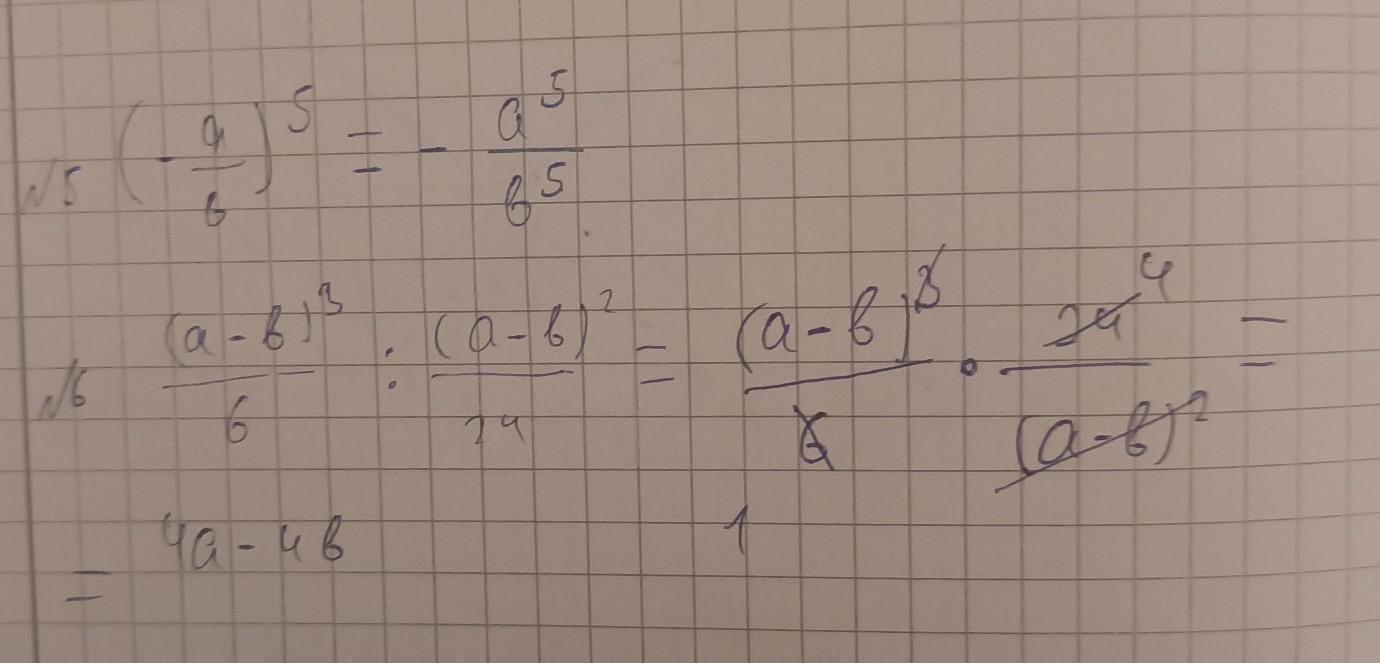 №5 (-a/в)^5 = - a^5/в^5.
№6 (a-в)^3/6 : (a-в)^2/24 = (a-в)^3/6 · 24^4/(a-в)^2 =
= 4a-4в 1